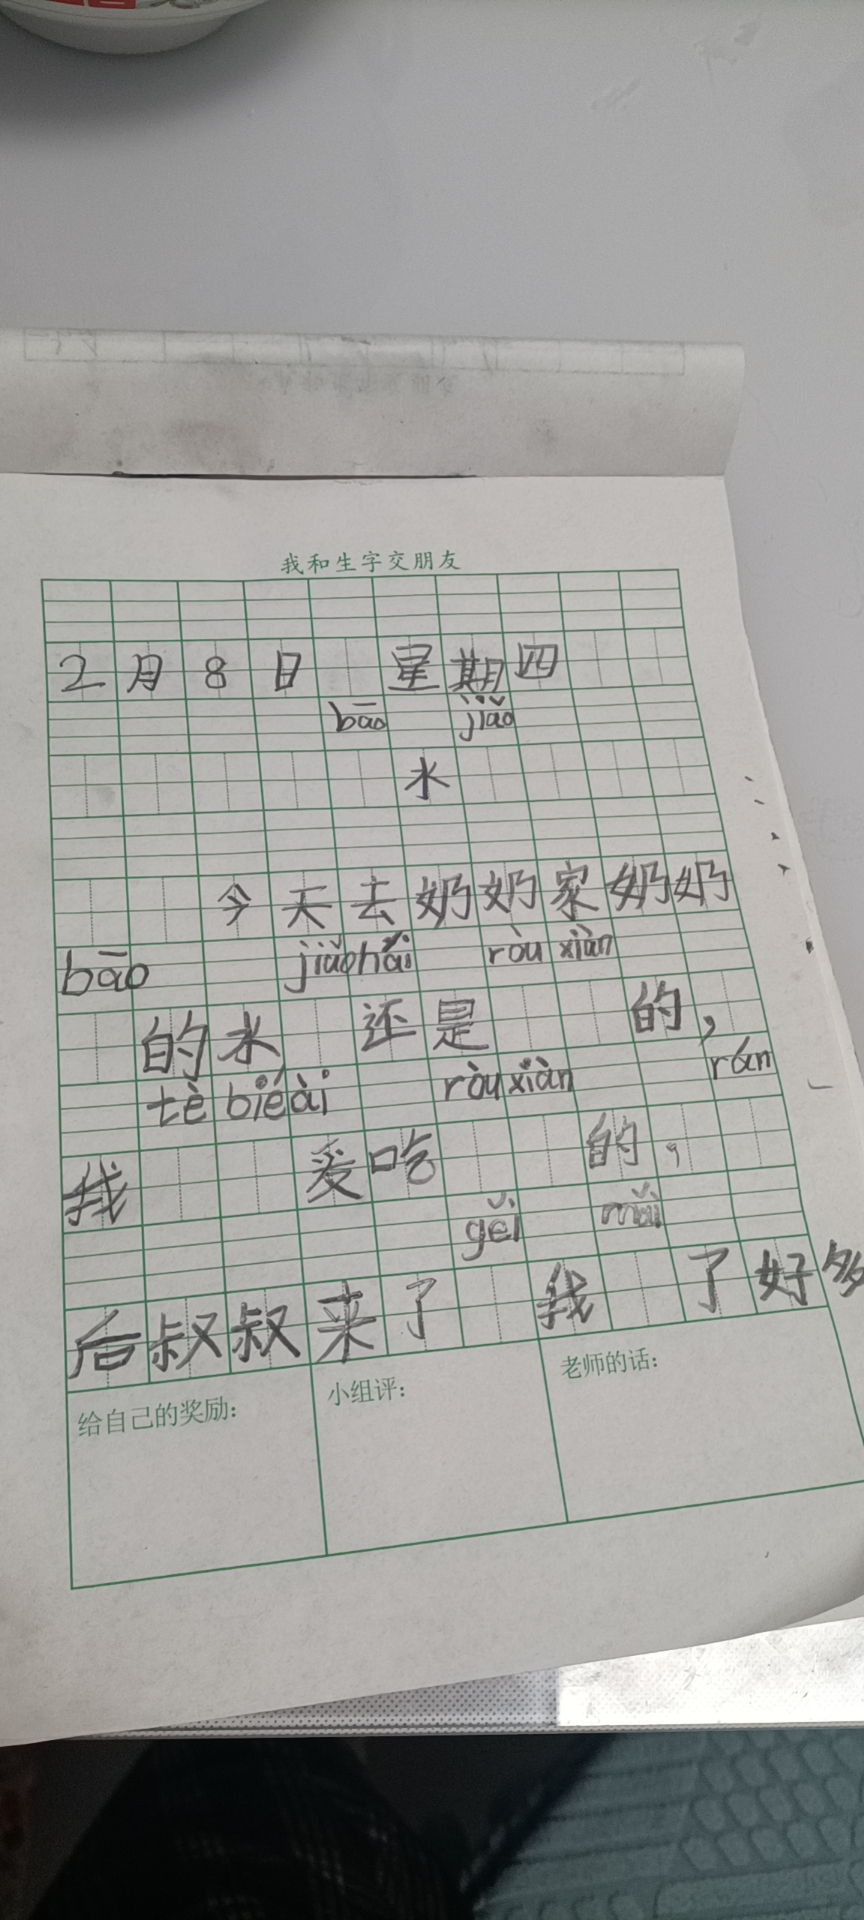 我和生字交朋友
2月8日 星期四
bāo jiǎo
水
今天去奶奶家奶奶
bāo jiǎo hái ròu xiàn
的水 还是 的，
tè bié ài ròu xiàn rán
我 爱吃 的，
gěi mǎi
后叔叔来了 我 了好多
给自己的奖励： 小组评： 老师的话：